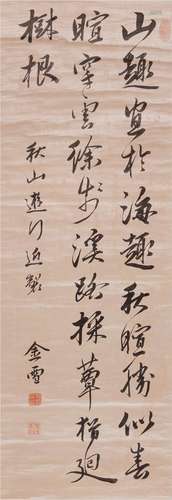 山趣宜於海趣秋暄勝似春
暄穿雲徐步溪路採蕈猶迴
樹根
秋山遊行近製
金雪